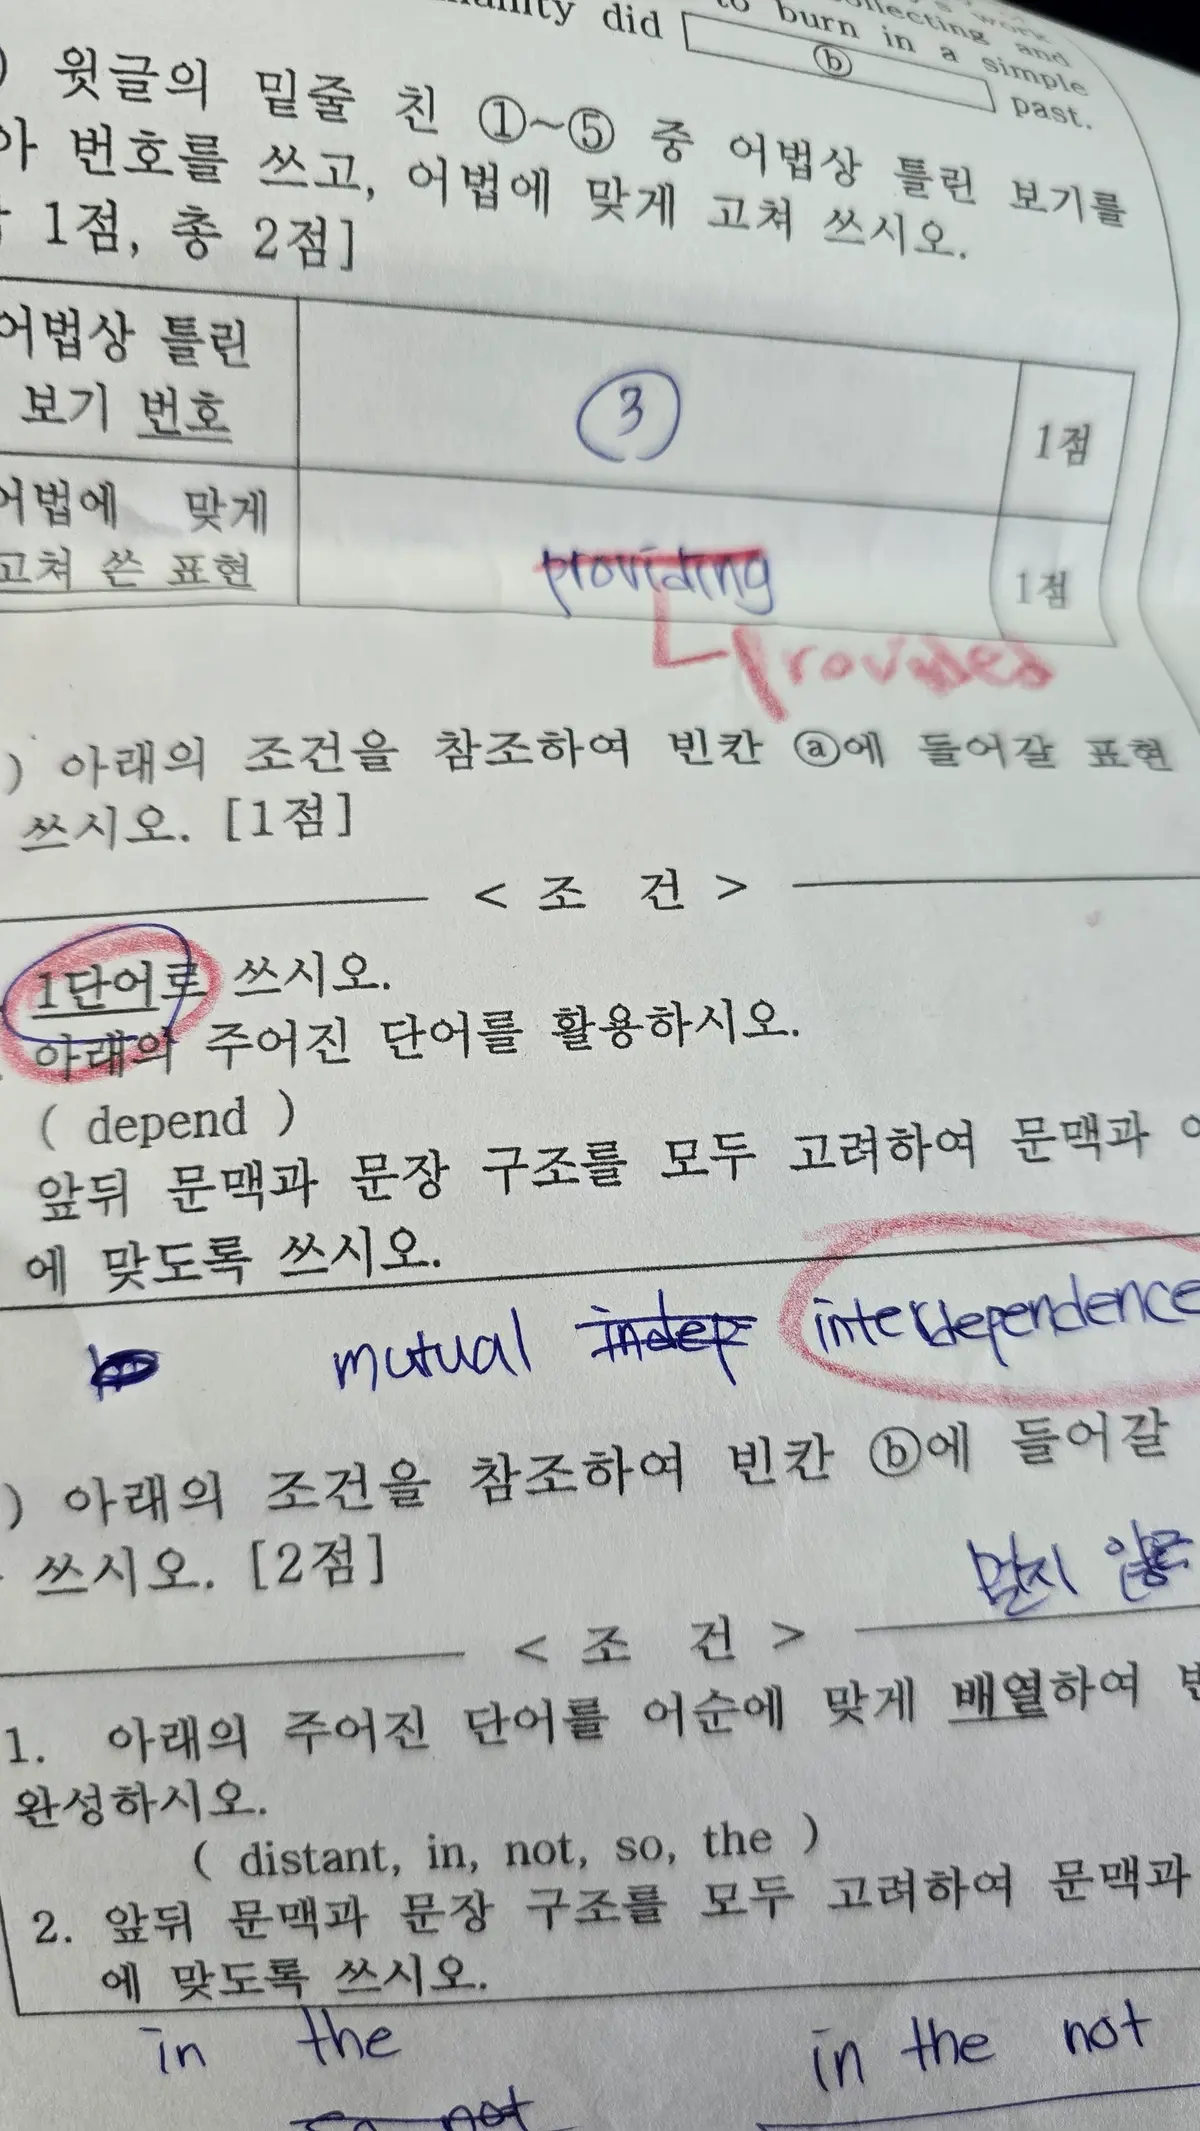 did to burn in a simple
ⓑ past.
) 윗글의 밑줄 친 ①~⑤ 중 어법상 틀린 보기를
아 번호를 쓰고, 어법에 맞게 고쳐 쓰시오.
1점, 총 2점]
어법상 틀린
보기 번호
③
1점
어법에 맞게
고쳐 쓴 표현
providing
1점
provided
) 아래의 조건을 참조하여 빈칸 ⓐ에 들어갈 표현
쓰시오. [1점]
< 조 건 >
1단어로 쓰시오.
아래의 주어진 단어를 활용하시오.
( depend )
앞뒤 문맥과 문장 구조를 모두 고려하여 문맥과
에 맞도록 쓰시오.
mutual indep interdependence
) 아래의 조건을 참조하여 빈칸 ⓑ에 들어갈
쓰시오. [2점]
멀지 않은
< 조 건 >
1. 아래의 주어진 단어를 어순에 맞게 배열하여
완성하시오.
( distant, in, not, so, the )
2. 앞뒤 문맥과 문장 구조를 모두 고려하여 문맥과
에 맞도록 쓰시오.
in the in the not
so not